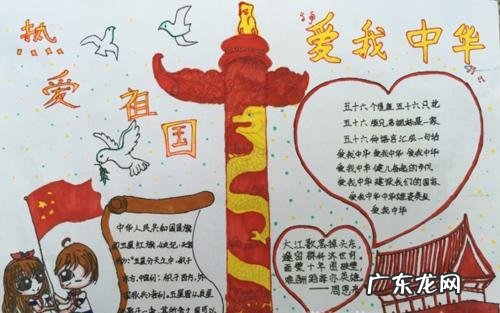 热爱祖国
爱我中华
五十六个星座 五十六只花
五十六族兄弟姐妹是一家
五十六种语言汇成一句话
爱我中华 爱我中华 爱我中华
爱我中华 健儿奋起的步伐
爱我中华 建设我们的国家
爱我中华 中华雄姿英发
爱我中华
中华人民共和国国旗
的五星红旗
大江歌罢掉头东,
邃密群科济世穷。
面壁十年图破壁,
难酬蹈海亦英雄。
——周恩来
广东龙网